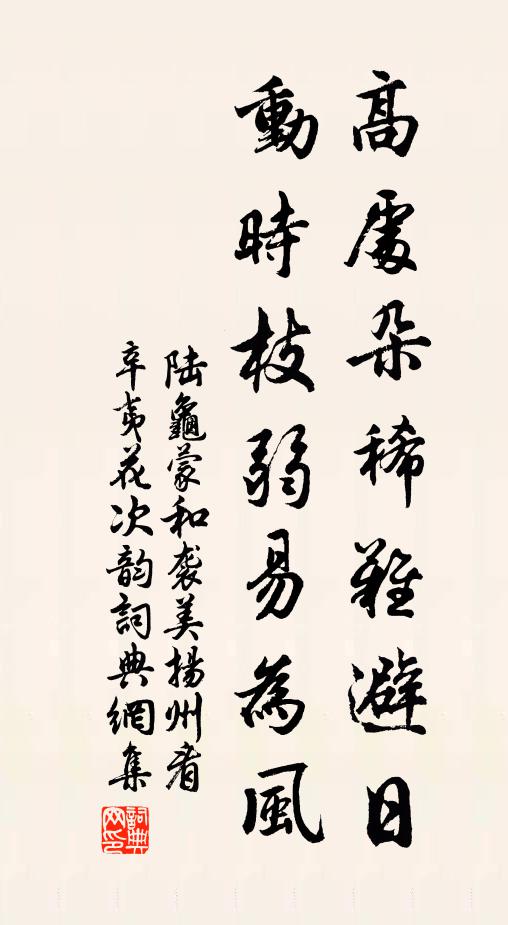 高處朵稀難避日
動時枝弱易為風
陸龜蒙和袭美揚州看
辛夷花次韵詞典網集
詞典
网印